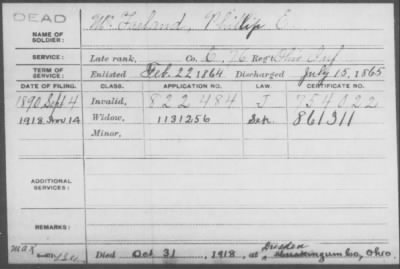 DEAD
NAME OF SOLDIER: McFarland, Phillip E.
SERVICE: Late rank, Co. E, 76 Reg't Ohio Inf
TERM OF SERVICE: Enlisted Feb. 22 1864, Discharged July 15, 1865
DATE OF FILING. CLASS. APPLICATION NO. LAW. CERTIFICATE NO.
1890 Sept 4 Invalid, 822484 J 754022
1918 Nov 14 Widow, 1131256 861311
Minor,
ADDITIONAL SERVICES:
REMARKS:
Died Oct 31, 1918, at Dresden
Muskingum Co, Ohio.